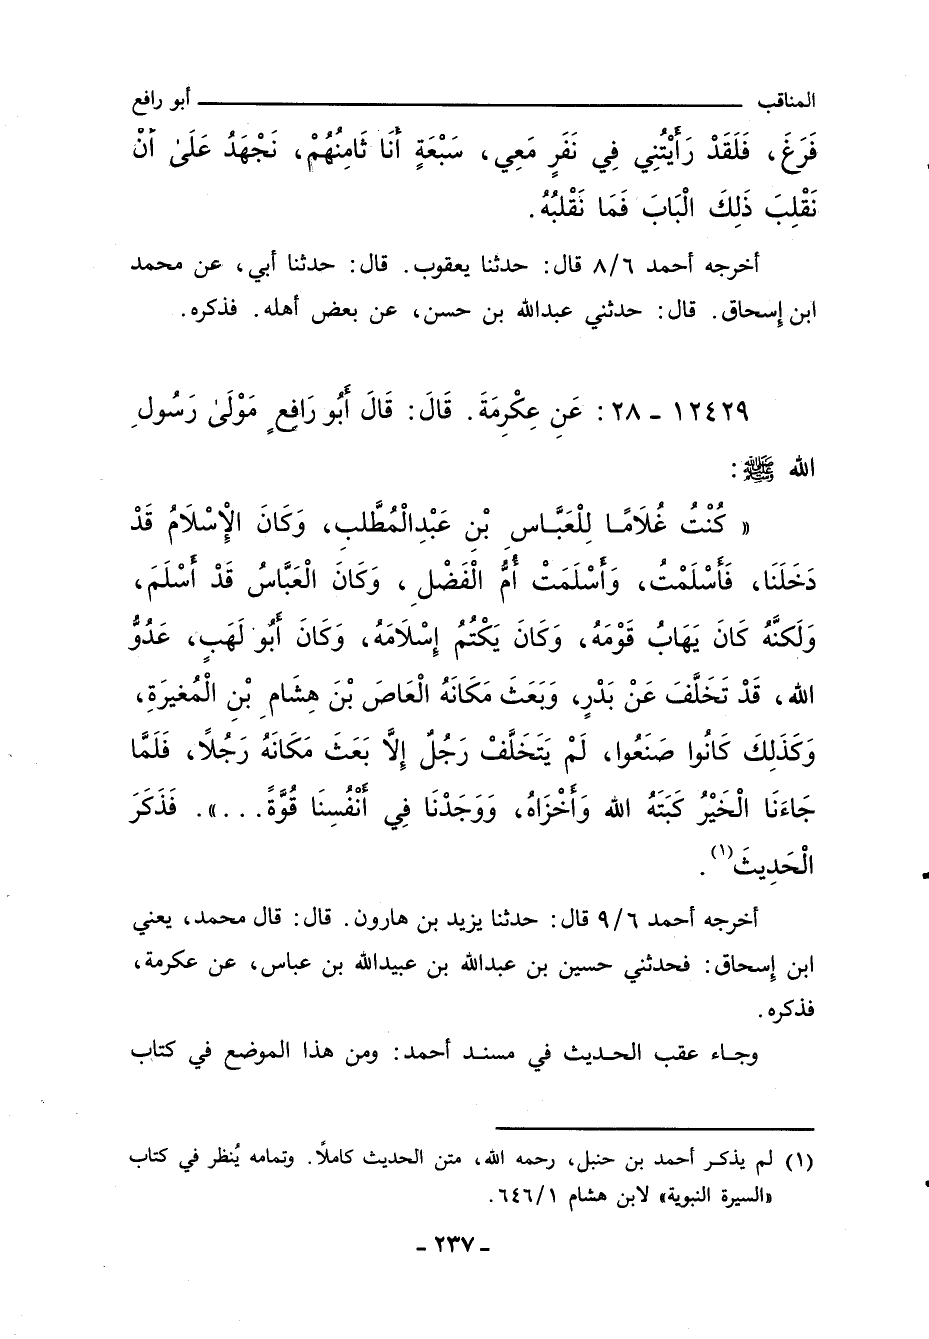 المناقب ـــــــــــــــــ أبو رافع
فَرَغَ، فَلَقَدْ رَأَيْتُنِي فِي نَفَرٍ مَعِي، سَبْعَةٍ أَنَا ثَامِنُهُمْ، نَجْهَدُ عَلَىٰ أَنْ
نَقْلِبَ ذَلِكَ الْبَابَ فَمَا نَقْلِبُهُ.
أخرجه أحمد ٨/٦ قال: حدثنا يعقوب. قال: حدثنا أبي، عن محمد
ابن إسحاق. قال: حدثني عبدالله بن حسن، عن بعض أهله. فذكره.
١٢٤٢٩ - ٢٨: عَنِ عِكْرِمَةَ. قَالَ: قَالَ أَبُو رَافِعٍ مَوْلَىٰ رَسُولِ
الله ﷺ:
« كُنْتُ غُلَامًا لِلْعَبَّاسِ بْنِ عَبْدِالْمُطَّلِبِ، وَكَانَ الإِسْلَامُ قَدْ
دَخَلَنَا، فَأَسْلَمْتُ، وَأَسْلَمَتْ أُمُّ الْفَضْلِ، وَكَانَ الْعَبَّاسُ قَدْ أَسْلَمَ،
وَلَكِنَّهُ كَانَ يَهَابُ قَوْمَهُ، وَكَانَ يَكْتُمُ إِسْلَامَهُ، وَكَانَ أَبُو لَهَبٍ، عَدُوُّ
الله، قَدْ تَخَلَّفَ عَنْ بَدْرٍ، وَبَعَثَ مَكَانَهُ الْعَاصَ بْنَ هِشَامِ بْنِ الْمُغِيرَةِ،
وَكَذَلِكَ كَانُوا صَنَعُوا، لَمْ يَتَخَلَّفْ رَجُلٌ إِلَّا بَعَثَ مَكَانَهُ رَجُلًا، فَلَمَّا
جَاءَنَا الْخَيْرُ كَبَتَهُ الله وَأَخْزَاهُ، وَوَجَدْنَا فِي أَنْفُسِنَا قُوَّةً...». فَذَكَرَ
الْحَدِيثَ(١).
أخرجه أحمد ٩/٦ قال: حدثنا يزيد بن هارون. قال: قال محمد، يعني
ابن إسحاق: فحدثني حسين بن عبدالله بن عبيدالله بن عباس، عن عكرمة،
فذكره.
وجاء عقب الحديث في مسند أحمد: ومن هذا الموضع في كتاب
(١) لم يذكر أحمد بن حنبل، رحمه الله، متن الحديث كاملًا. وتمامه يُنظر في كتاب
«السيرة النبوية» لابن هشام ٦٤٦/١.
- ٢٣٧ -